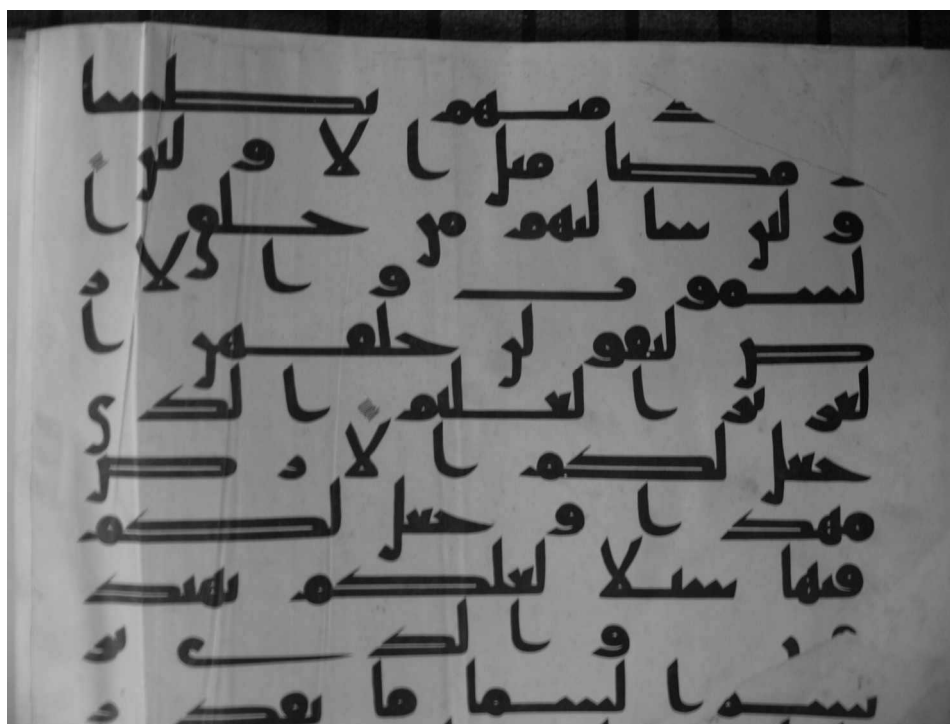 منهم بطشا
مضا مثل ا لا و لين
و لين سا لتهم من خلق ا
لسموت و ا لا ر
ض ليقو لن خلقهن ا
لعزيز ا لعليم ا لذي
جعل لكم ا لا ر ض
مهدا و جعل لكم
فيها سبلا لعلكم تهتد
و ا لذي نز
ا لسما ما بقد ر